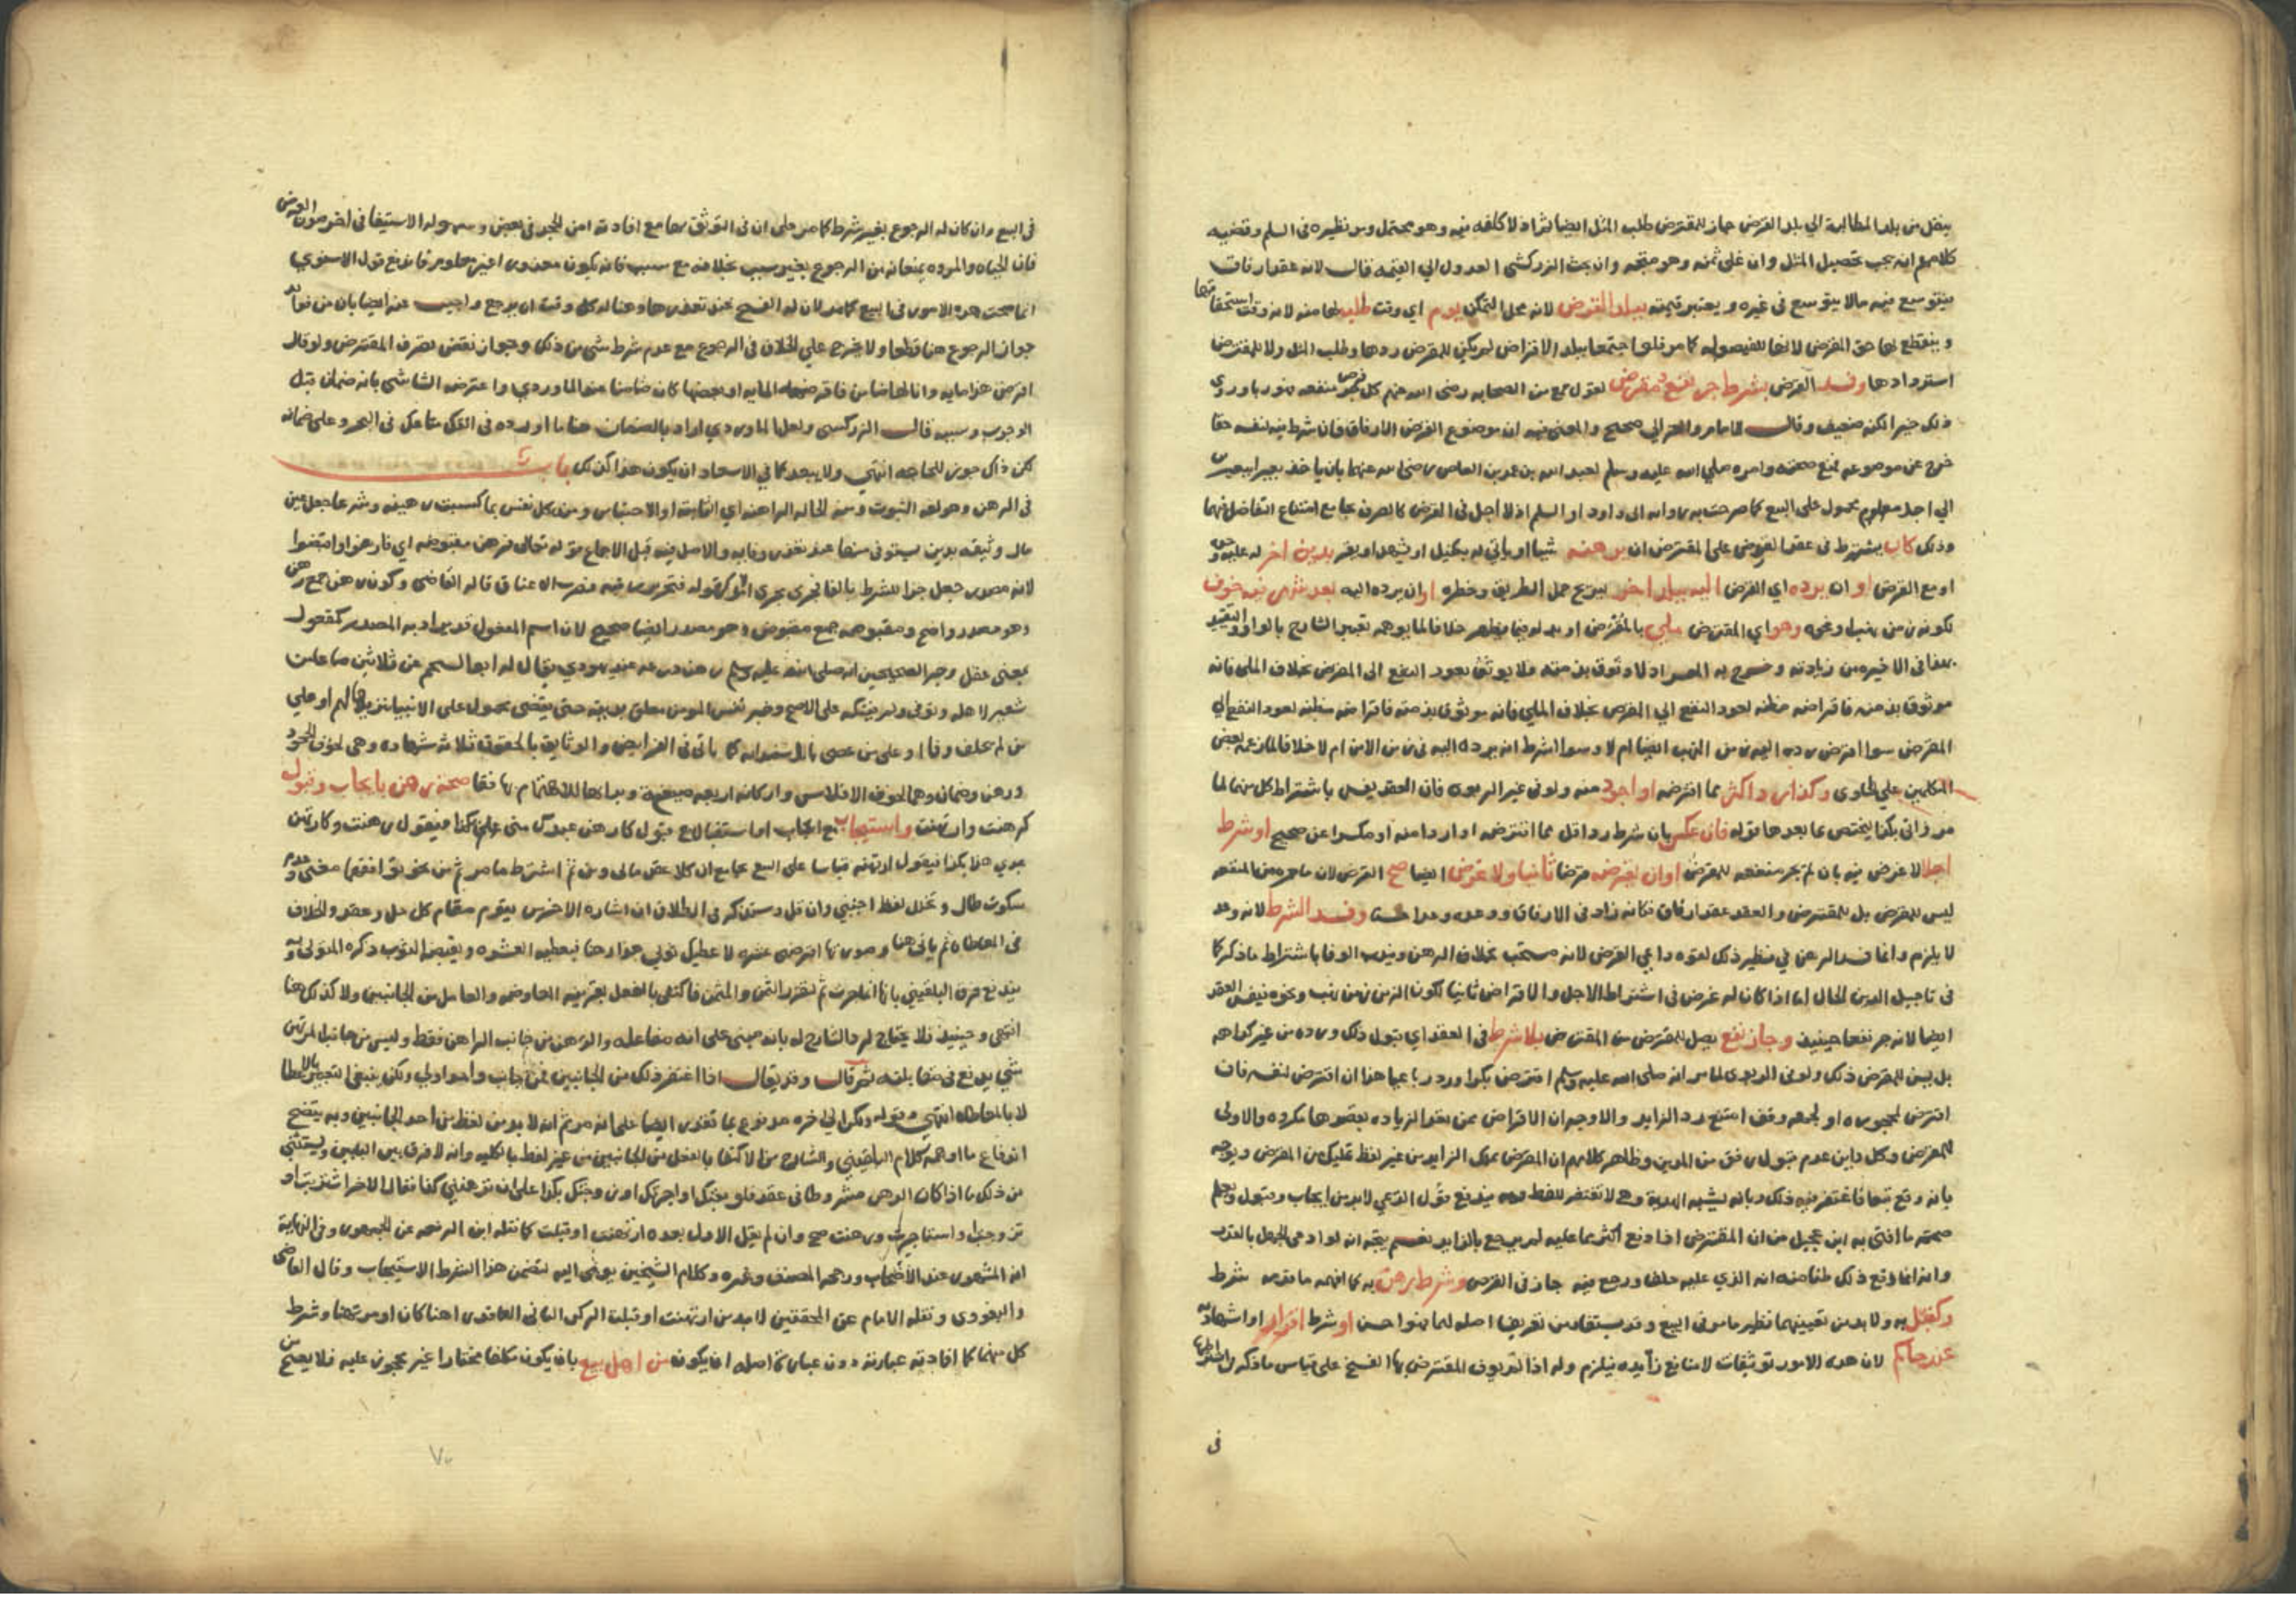 ينقل من بلد المطالبة الي بلد القرض جاز للمقترض طلب المثل ايضا اذ لا كلفه فيه وهو محتمل ومر نظيره في السلم وقضيه
كلامهم انه يجب تحصيل المثل وان غلي ثمنه وهو متجه وان بحث الزركشي العدول الي القيمه قال لانه عقد ارفاق
يتوسع فيه مالا يتوسع في غيره ويعتبر قيمته ببلد القرض لانه محل التمكن يوم اي وقت طلبه لها منه لانه وقت استحقاقها
وينقطع بها حق المقرض لانها للفيصوله كما مر فلو اجتمعا ببلد الاقراض لم يكن للمقرض ردها وطلب المثل ولا للمقترض
استردادها وفسد القرض بشرط جر نفع مقرض لقول جمع من الصحابه رضي الله عنهم كل قرض جر منفعه فهو ربا وروي
ذلك خبر الكنه ضعيف وقال الامام والغزالي صحيح والمعني فيه ان موضوع القرض الارفاق فان شرط فيه لنفسه حقا
خرج عن موضوعه فمنع صحته وامره صلي الله عليه وسلم لعبد الله بن عمرو بن العاص رضي الله عنهما بان ياخذ بعيرا ببعيرين
الي اجل معلوم محمول علي البيع كما صرحت به رواية ابي داود او السلم اذ لا اجل في القرض كالصرف بجامع امتناع التفاضل فيهما
وذلك كان يشترط في عقد القرض علي المقترض ان يرهنه شيا او ياتي له بكفيل او يشهد او يقر بدين اخر له عليه
او مع القرض او ان يرده اي القرض اليه ببلد اخر ليربح حمل الطريق وخطره او ان يرده اليه بعد شهر فيه خوف
لكونه زمن نهب او نحوه وهو اي المقترض ملي بالمقرض او بدله فيما يظهر خلافا لما يوهمه تعبير الشارح بالوا والتقييد
بهذا في الاخيره من زيادته وخرج به المعسر اذ لا وثوق بذمته فلا يوثق بعود النفع الي المقرض بخلاف الملي فانه
موثوق بذمته فاقراضه مظنه لعود النفع الي المقرض بخلاف الملي فانه موثوق بذمته فاقراضه مظنه لعود النفع الي
المقرض سوا اقترض رده اليه زمن النهب ايضا ام لا وسوا شرط انه يرده اليه في زمن الامن ام لا خلافا لما زعمه بعض
المتكلمين علي الحاوي وكذا رد اكثر مما اقترضه او اجود منه ولو في غير الربوي فان العقد يفسد باشتراط كل منهما لما
مر زاني بكذا يختص بما بعدها قوله فان عكس بان شرط رد اقل مما اقترضه او اردا منه او مكسرا عن صحيح او شرط
اجلا لا غرض فيه بان لم يجر منفعه للمقرض او ان يقرضه قرضا ثانيا ولا غرض ايضا صح القرض لان ما جره من المنفعه
ليس للمقرض بل للمقترض والعقد عقد ارفاق فكانه زاد في الارفاق ووعده وعدا حسنا وفسد الشرط لانه وعد
لا يلزم وانما فسد الرهن في نظير ذلك لقوه داعي القرض لانه مستحب بخلاف الرهن ويندب الوفا باشتراط ما ذكر كما
في تاجيل الدين الحال اما اذا كان له غرض في اشتراط الاجل والاقراض ثانيا لكون الزمن زمن نهب ونحوه فيفسد العقد
ايضا لانه جر نفعا حينيذ وجاز نفع يصل للمقرض من المقترض بلا شرط في العقد اي قبول ذلك ورده من غير كراهه
بل يسن للمقرض ذلك ولو في الربوي لما مر انه صلي الله عليه وسلم اقترض بكرا ورد رباعيا هذا ان اقترض لنفسه فان
اقترض لمحجوره او لجهة وقف امتنع رد الزايد والاوجه ان الاقراض ممن يعود الزياده بقصدها مكروه والاولي
للمقرض وكل داين عدم قبول رفق من المدين وظاهر كلامهم ان المقرض يملك الزايد من غير لفظ تمليك من المقرض ويوجه
بانه وقع تبعا فاغتفر فيه ذلك وبانه يشبه الهدية وهي لا تفتقر للفظ وبه يندفع قول القزعي لابد من ايجاب وقبول ويعلم
صحته ما افتي به ابن عجيل من ان المقترض اذا دفع اكثر مما عليه لم يرجع بالزايد نعم يتجه انه لو ادعي الجهل بالقدر
وانه انما دفع ذلك ظنا منه انه الذي عليه حلف ورجع فيه جاز في القرض وشرط رهن به كما افهمه ما قدمه شرط
وكفيل به ولابد من تعيينهما نظير ما مر في البيع وقد يستفاد من تعريف اصله لهما فهو احسن او شرط اقرار او اشهاد به
عند حاكم لان هذه الامور توثيقات لا منافع زايده فيلزم وله اذا لم يوف المقترض بها الفسخ علي قياس ما ذكر في اشتراطها
في
في البيع وان كان له الرجوع بغير شرط كما مر علي ان في التوثق بها مع افادته امن الجحد في بعض وسهوله الاستيفا في اخر صون العرض
فان الحياه والمروه يمنعانه من الرجوع بغير سبب بخلافه مع سبب فانه يكون معذورا غير ملوم فاندفع قول الاسنوي
انما صحت هذه الامور في البيع كما مر لان له الفسخ عند تعذرها وهنا له كل وقت ان يرجع واجيب عنه ايضا بان من فوائد
جواز الرجوع هنا قطعا ولا يخرج علي الخلاف في الرجوع مع عدم شرط شي من ذلك وجواز نقض تصرف المقترض ولو قال
اقرض هذا مايه وانا لها ضامن فاقرضه المايه او بعضها كان ضامنا عند الماوردي واعترضه الشاشي بانه ضمان قبل
الوجوب وسببه قال الزركشي ولعل الماوردي اراد بالضمان هنا ما اورده في الق متاعك في البحر وعلي ضمانه
لكن ذاك جوز للحاجه انتهي ولا يبعد كما في الاسعاد ان يكون هذا كذلك باب
في الرهن وهو لغه الثبوت ومنه الحاله الراهنه اي الثابته او الاحتباس ومنه كل نفس بما كسبت رهينه وشرعا جعل عين
مال وثيقه بدين يستوفي منها عند تعذر وفايه والاصل فيه قبل الاجماع قوله تعالي فرهن مقبوضه اي فارهنوا واقبضوا
لانه مصدر جعل جزا للشرط بالفا فجري مجري الامر كقوله فتحرير رقبه فضرب الاعناق قاله القاضي وكون رهن جمع رهن
وهو مصدر واضح ومقبوضه جمع مقبوض وهو مصدر ايضا صحيح لان اسم المفعول قد يراد به المصدر كمفعول
بمعني عقل وخبر الصحيحين انه صلي الله عليه وسلم رهن درعه عند يهودي يقال له ابو الشحم عن ثلاثين صاعا من
شعير لاهله وتوفي ولم يفتكه علي الاصح وخبر نفس المومن معلقه بدينه حتي يقضي محمول علي الانبيا تنزيها لهم او علي
من لم يخلف وفا او علي من عصي بالاستدانه كما ياتي في الفرايض والوثايق بالحقوق ثلاثه شهاده وهي لخوف الجحود
ورهن وضمان وهما لخوف الافلاس واركانه اربعه صيغه وبداها للاهتمام بها فقا صحه رهن بايجاب وقبول
كرهنت وارتهنت واستيجاب مع ايجاب اما استقبال مع قبول كارهن عبدك مني علي كذا فيقول رهنت وكارتهن
عبدي هذا بكذا فيقول ارتهنته قياسا علي البيع بجامع ان كلا عقد مالي ومن ثم اشترط ما مر ثم من نحو توافقهما معني وعدم
سكوت طال وتخلل لفظ اجنبي وان قل وستذكر في الطلاق ان اشاره الاخرس يقوم مقام كل حل وعقد والخلاف
في المعاطاه ثم ياتي هنا وصورتها اقرضني عشره لاعطيك ثوبي هذا رهنا فيعطيه العشره ويقبضه الثوب ذكره المتولي وبه
يندفع فرق البلقيني بانها انما جرت ثم لتقرر الثمن والمثمن فاكتفي بالفعل بقرينه المعاوضه والفاعل من الجانبين ولا كذلك هنا
انتهي وحينيذ فلا يحتاج لرد الشارح له بانه مبني علي انه مفاعله والرهن من جانب الراهن فقط وليس من جانب المرتهن
شي يوضع في مقابلته ثم قال وقد يقال اذا اغتفر ذلك من الجانبين فمن جانب واحد اولي ولكن ينبغي التعبير بالاعطا
لا بالمعاطاه انتهي وقوله ولكن الي اخره مدفوع بما تقدم ايضا علي انه مر ثم انه لا بد من لفظ من احد الجانبين وبه يتضح
اندفاع ما اوهمه كلام البلقيني والشارح من الاكتفا بالفعل من الجانبين من غير لفظ بالكليه وانه لا فرق بين البابين ويستثني
من ذلك ما اذا كان الرهن مشروطا في عقد فلو بعتك او اجرتك او زوجتك بكذا علي ان ترهنني كذا فقال الاخر اشتريت او
تزوجت او استاجرت ورهنت صح وان لم يقل الاول بعده ارتهنت او قبلت كما نقله ابن الرفعه عن الجمهور وفي النهاية
انه المشهور عند الاصحاب ورجحه المصنف وغيره وكلام الشيخين يومي اليه لتضمن هذا الشرط الاستيجاب وقال القاضي
والبغوي ونقله الامام عن المحققين لا بد من ارتهنت او قبلت الركن الثاني العاقد راهنا كان او مرتهنا وشرط
كل منهما كما افادته عبارته دون عبارة اصله ان يكون من اهل بيع بان يكون مكلفا مختارا غير محجور عليه فلا يصح من